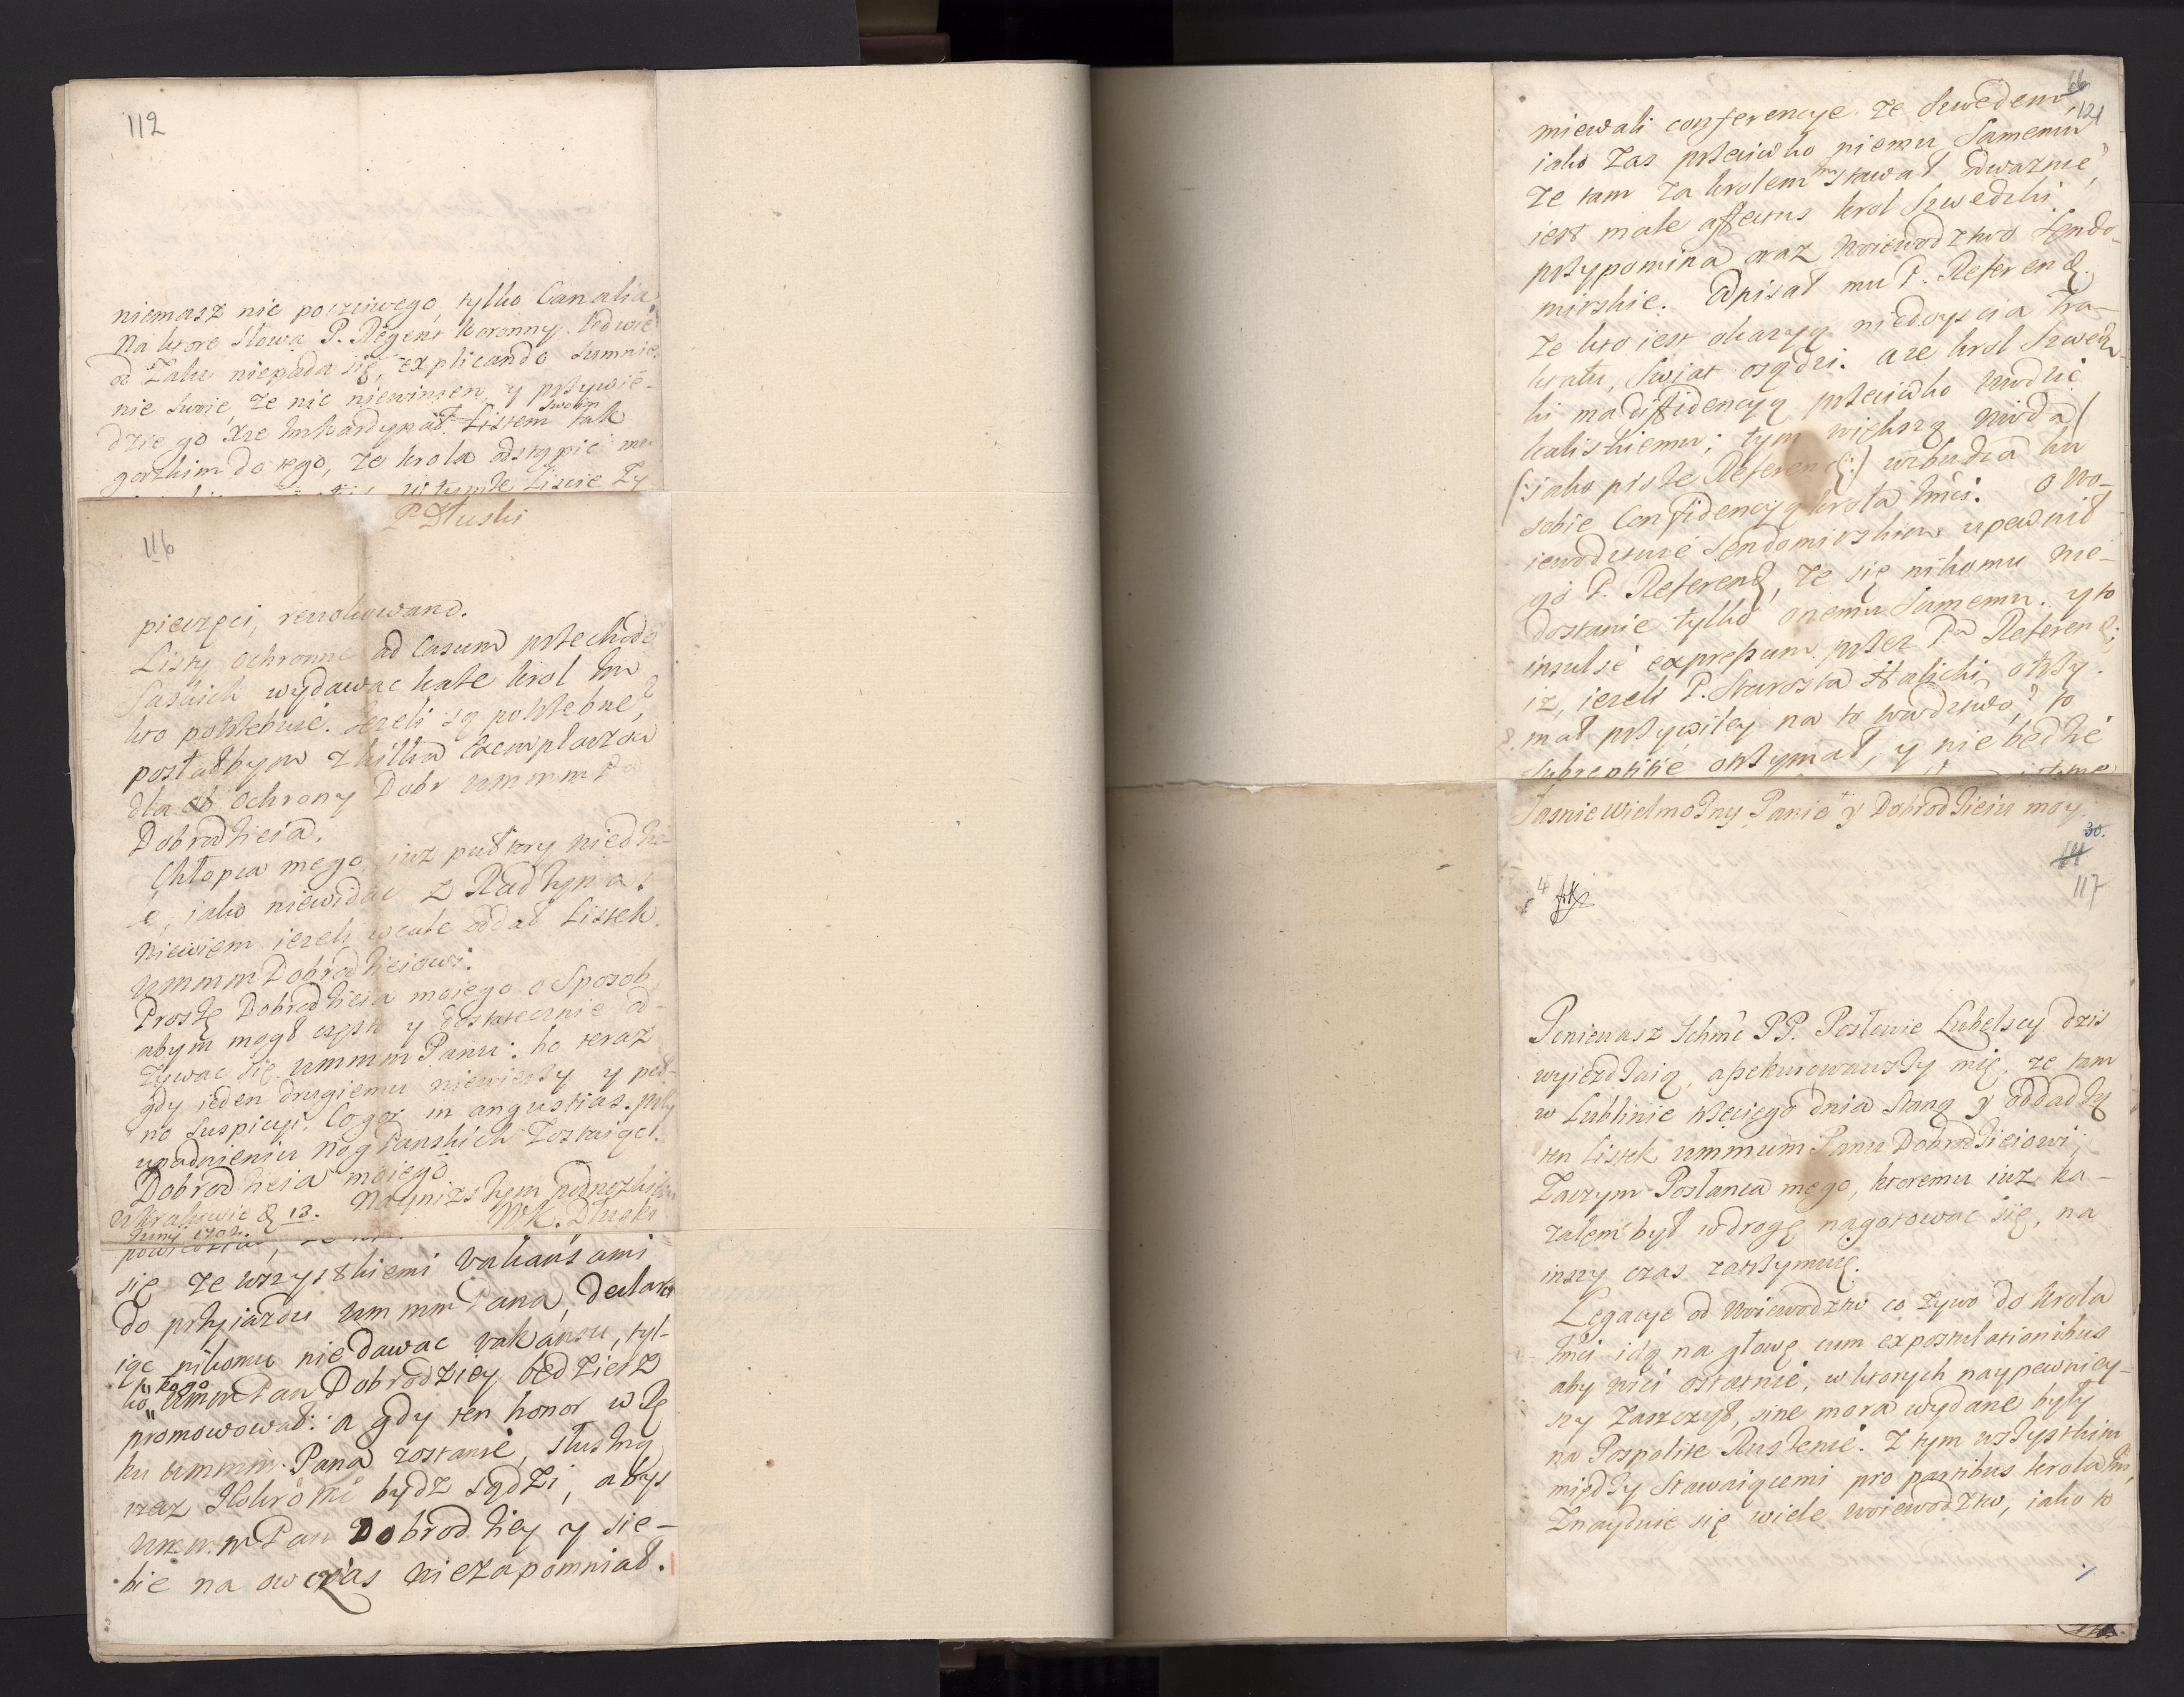 112
niemasz nic poczciwego, tylko Canalia
Na ktore słowa P. Regent koronny ledwie
od Zalu niepada się, explicando sumnie-
nie swoie, ze nic niewinien, y przywie-
swoim
dzie go Xze Imk ardynał Listem tak
gorzkim do tego, ze krola odstąpić
w tymze Liscie Zy
P Dłuski
116
pieczęci, rewokowano.
Listy ochronne ad Casum przechodu
Saskich wydawac kaze krol Im
kto potrzebuie. Jezeli są potrzebne,
posłałbym z kilka Exemplarzow
dla ochrony Dobr Ummm Pa
Dobrodzieia.
Chłopca mego iuz puł trzy niedzie-
le, iako niewidac z Radzyna.
Niewiem iezeli wcale oddał Listek
Ummm Dobrodzieiowi.
Proszę Dobrodzieia moiego o Sposob
abym mogł często y dostatecznie od-
zywac się Ummm Panu: bo teraz
gdy ieden drugiemu niewierzy y peł-
no suspicyi, Cogor in angustias. przy
upadnieniu Nog Panskich Zostaiąc
Dobrodzieia moiego
Nayniszszym podnozkiem
WK. Dłuski
w Krakowie d 13.
Junij 1702.
się ze wszystkiemi Vakansami
do przyiazdu Ummm Pana, deklaru
iąc nikomu nie dawac vakansu, tyl-
kogo
ko Umm Pan Dobrodziey będziesz
promowował: a gdy ten honor w Rę
ku Ummm. Pana zostanie, słuszną
rzez IKokrolMc bydz sądzi, abys
Um m m Pan Dobrodziey y sie-
bie na owczas niezapomniał.
66
121
miewali conferencye ze Szwedem,
iako Zas przeciwko niemu Samemu
Ze tam Za krolem Im stawał odwaznie,
iest male affectus krol Szwedzki
przypomina oraz Woiewodztwo Sendo-
mirskie. Odpisał mu P. Referend.
Ze kto iest okazyą niedoyscia Tra-
ktatu, Swiat osądzi. aze krol Szwedz-
ki ma diffidencyą przeciwko Wwdzie
kaliskiemu; tym większą Wwda
(: iako pisze Referend:) wzbudza ku
sobie Confidencyą krola Imci. O Wo-
iewodztwie Sendomirskim upewnił
go P. Referend, Ze się nikomu nie-
dostanie tylko onemu Samemu. y to
insulse expressum przez Pa Referend;
iz, iezeli P. Starosta Halicki otrzy.
mał przywiley na to wwdztwo? to
subreptitie otrzymał, y nie będzie
Jasnie Wielmozny Panie y Dobrodzieiu moy
30.
117
Poniewasz Ichmc PP. Posłowie Lubelscy dzis
wyiezdzaią, assekurowawszy mię, ze tam
w Lublinie trzeciego dnia staną y oddadzą
ten Listek Ummum Panu Dobrodzieiowi,
Zaczym Posłanca mego, ktoremu iuz ka-
załem był w drogę nagotowac się, na
inszy czas zatrzymuię.
Legacye od Woiewodztw co zywo do krola
Imci idą na głowę cum expostulationibus
aby Wici ostatnie, w ktorych naypewniey-
szy Zaszczyt, sine mora wydane były
na Pospolite Ruszenie. Z tym wszystkim
między stawaiącemi pro partibus krola Im,
Znayduie się wiele woiewodztw, iako to